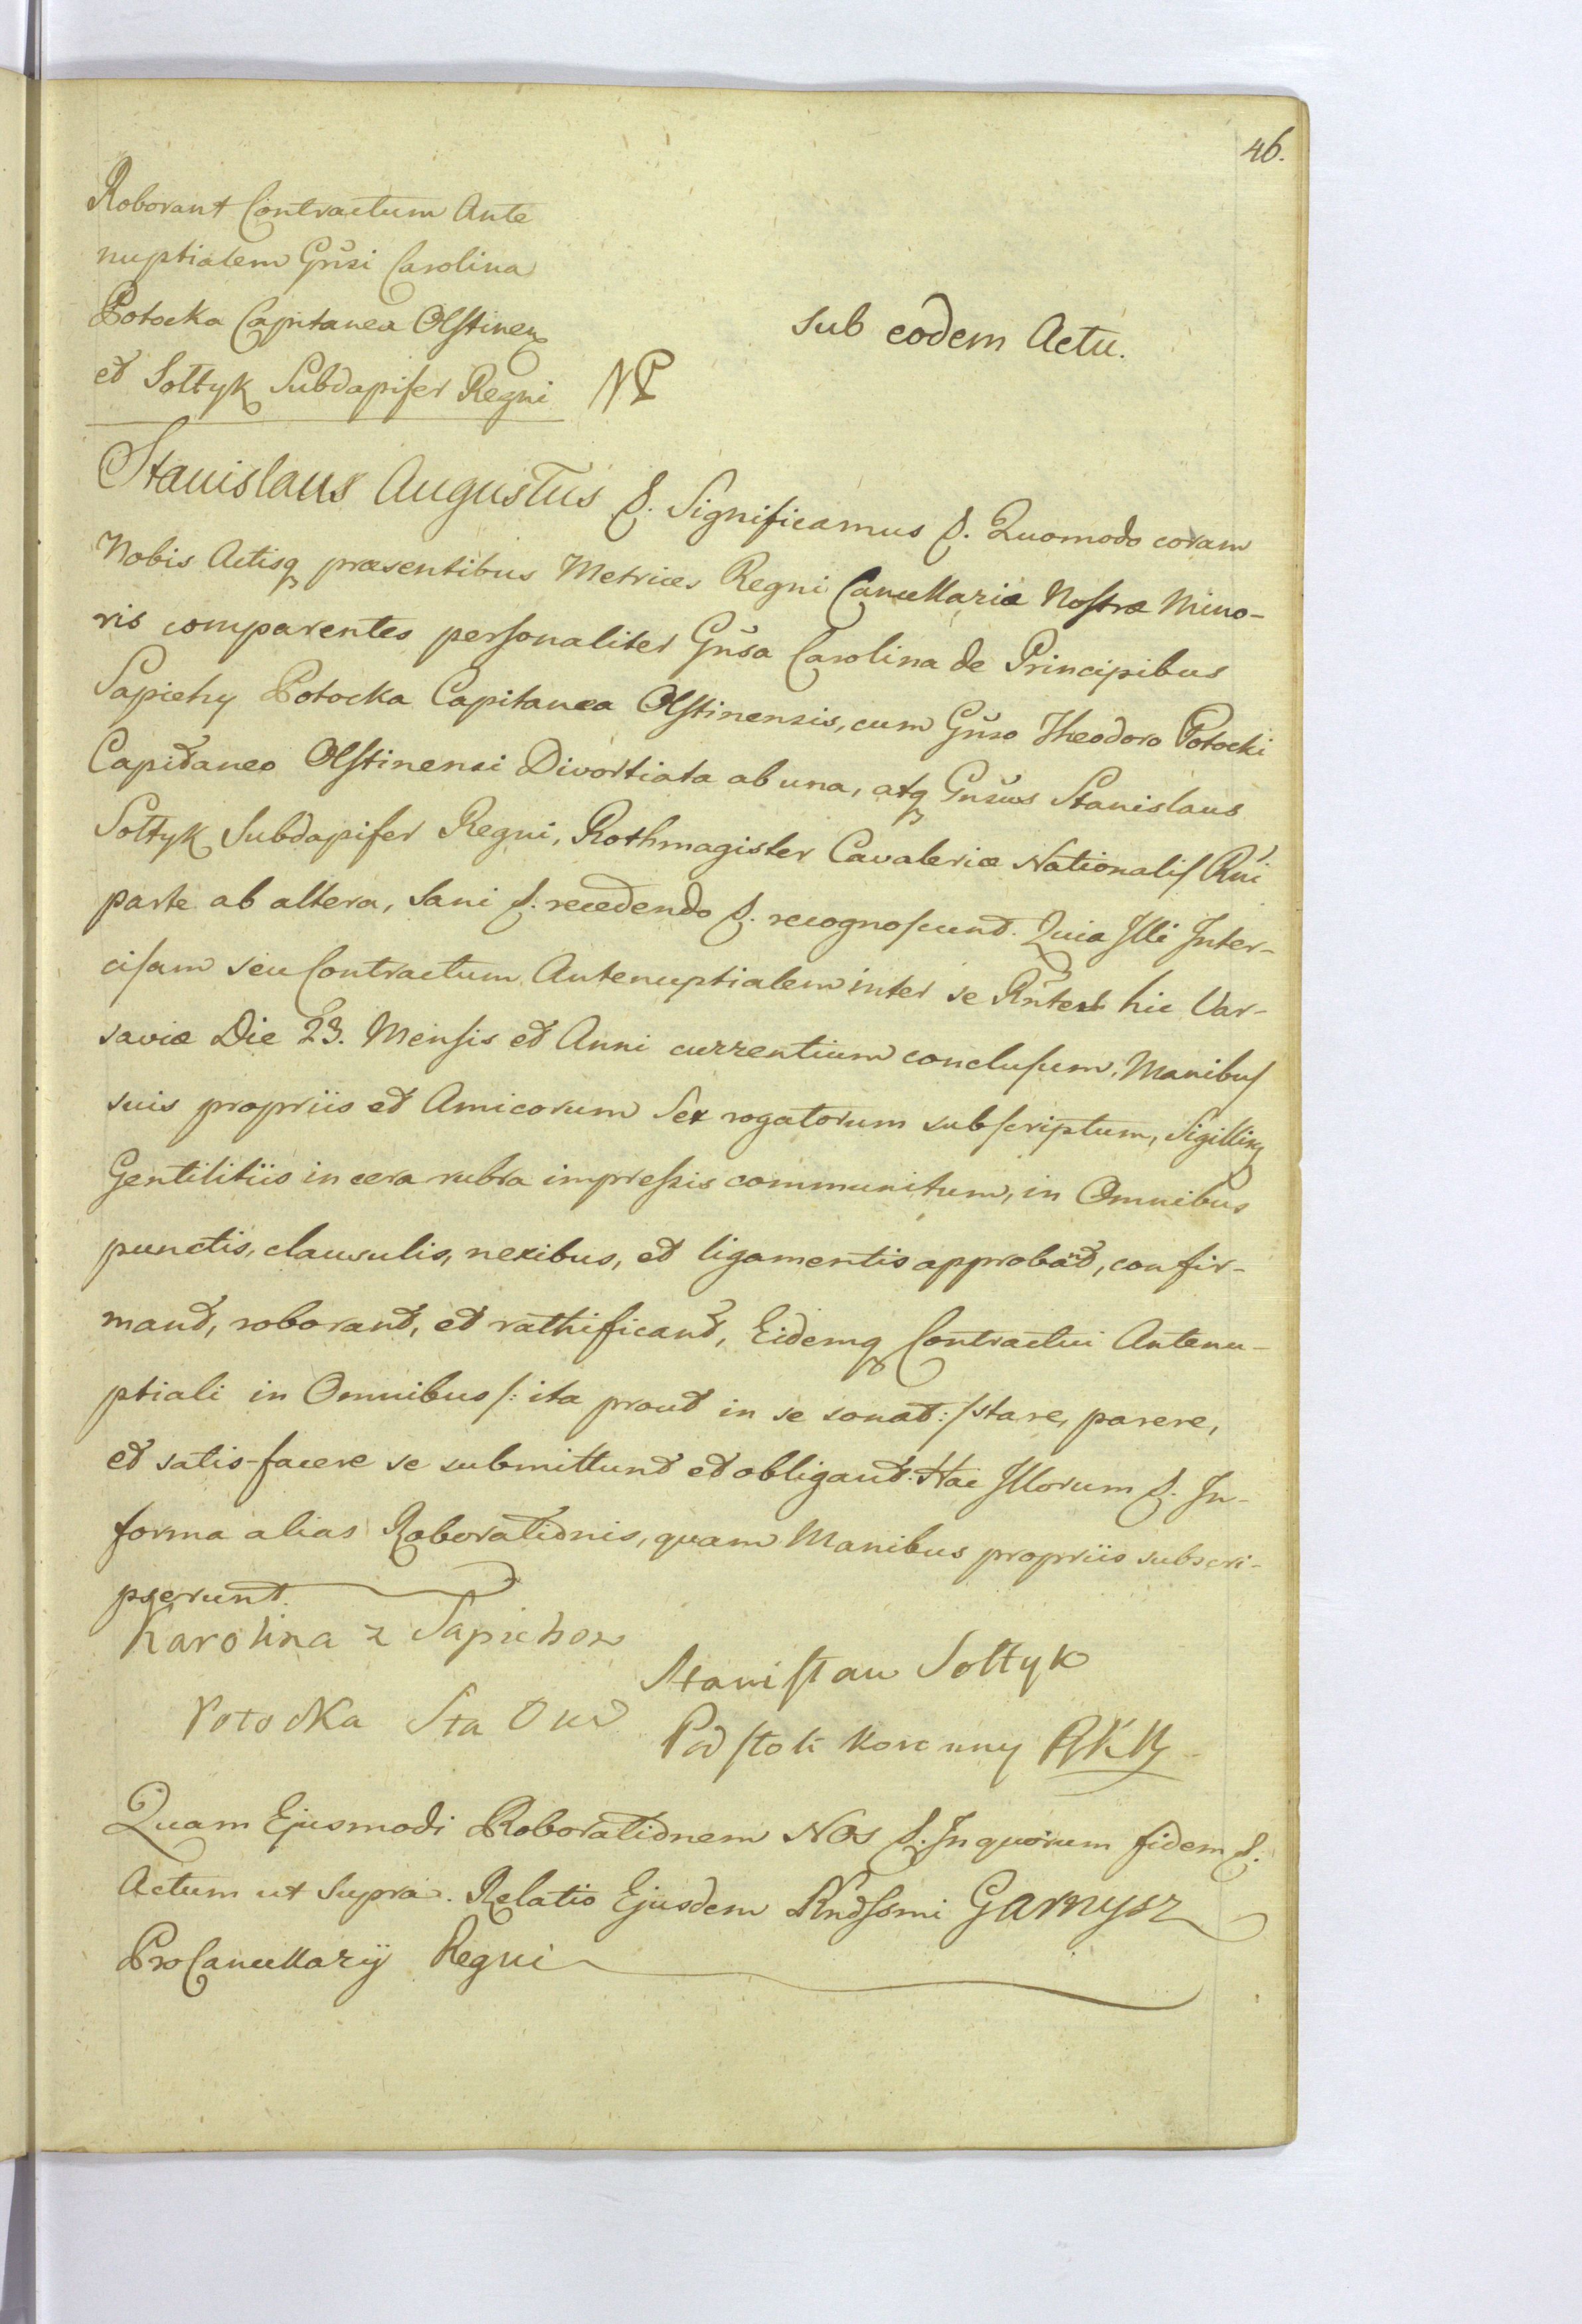 46.
Roborant Contractum Ante
nuptialem Gn̄si Carolina
Potocka Capitanea Olstinen
et Sołtyk Subdapifer Regni NP
sub eodem Actu.
Stanislaus Augustus &. Significamus &. Quomodo coram
Nobis Actisq præsentibus Metrices Regni Cancellariæ Nostræ Mino-
ris comparentes personaliter Gn̄sa Carolina de Principibus
Sapiehy Potocka Capitanea Olstinensis, cum Gn̄so Theodoro Potocki
Capitaneo Olstinensi Divortiata ab una, atq Gn̄sus Stanislaus
Sołtyk Subdapifer Regni, Rothmagister Cavaleriæ Nationalis Rn̄i
parte ab altera, sani &. recedendo &. recognoscunt. Quia Illi Inter-
cisam seu Contractum Antenuptialem inter se Rn̄tes hic Var-
saviæ Die 23. Mensis et Anni currentium conclusum, Manibus
suis propriis et Amicorum Sex rogatorum subscriptum, Sigillisq
Gentilitiis in cera rubra impressis communitum, in Omnibus
punctis, clausulis, nexibus, et ligamentis approbant, confir-
mant, roborant, et rathificant, Eidemq Contractui Antenu-
ptiali in Omnibus /: ita prout in se sonat :/ stare, parere,
et satis-facere se submittunt et obligant. Hac Illorum &. In-
forma alias Roborationis, quam Manibus propriis subscri-
pserunt.
Karolina z Sapiehow
Stanisław Sołtyk
Potocka Sta
Podstoli Koronny
Quam Ejusmodi Roborationem Nos &. In quorum fidem &.
Actum ut supra. Relatio Ejusdem Rndssmi Garnysz
ProCancellarij Regni